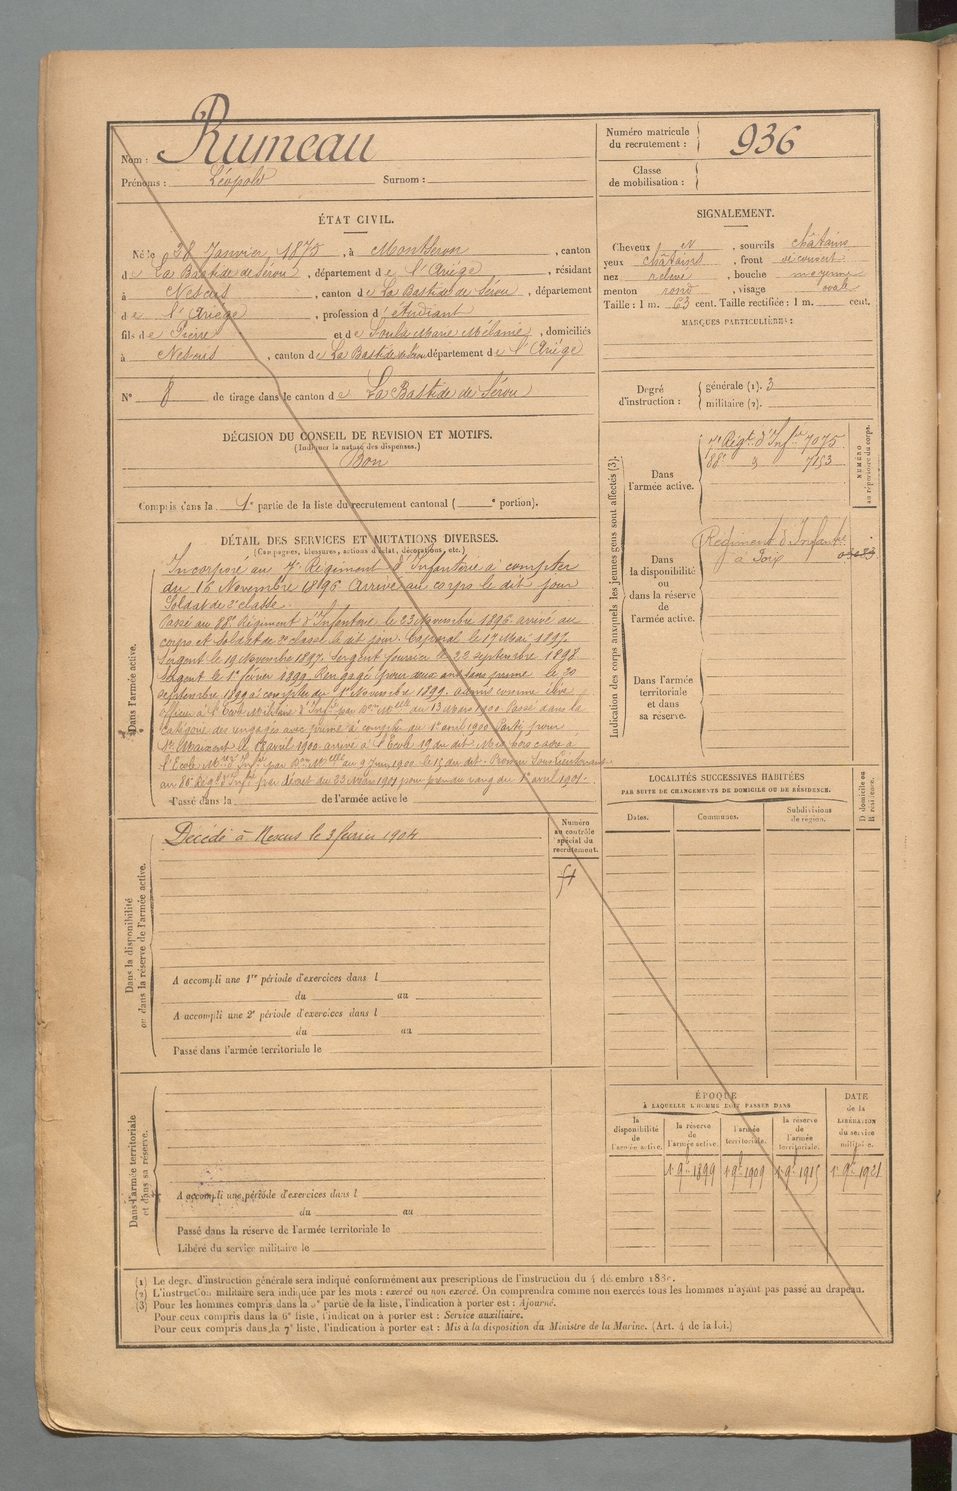 Nom : Rumeau
Prénoms : Léopold Surnom :
Numéro matricule du recrutement : 936
Classe de mobilisation :
ÉTAT CIVIL.
Né le 28 Janvier 1875, à Montseron, canton
de La Bastide de Sérou, département de l'Ariège, résidant
à Nescus, canton de La Bastide de Sérou, département
de l'Ariège, profession d'étudiant
fils de Pierre et de Soula Marie Mélanie, domiciliés
à Nescus, canton de La Bastide de Sérou département de l'Ariège
N° 8 de tirage dans le canton de La Bastide de Sérou
SIGNALEMENT.
Cheveux N, sourcils châtains
yeux châtains, front découvert
nez relevé, bouche moyenne
menton rond, visage ovale
Taille : 1 m. 63 cent. Taille rectifiée : 1 m. cent.
MARQUES PARTICULIÈRES :
Degré d'instruction : générale (1). 3
militaire (2).
DÉCISION DU CONSEIL DE REVISION ET MOTIFS.
(Indiquer la nature des dispenses.)
Bon
Compris dans la 1e partie de la liste du recrutement cantonal ( e portion).
DÉTAIL DES SERVICES ET MUTATIONS DIVERSES.
(Campagnes, blessures, actions d'éclat, décorations, etc.)
Dans l'armée active.
Incorporé au 7e Régiment d'Infanterie à compter
du 16 Novembre 1896 Arrivé au corps le dit jour
Soldat de 2e classe.
Passé au 88e Régiment d'Infanterie le 23 Novembre 1896 arrivé au
corps et Soldat de 2e classe le dit jour. Caporal le 17 Mai 1897.
Sergent le 19 Novembre 1897. Sergent fourrier le 22 septembre 1898
Sergent le 1er février 1899. Rengagé pour deux ans sans prime le 30
septembre 1899 à compter du 1er Novembre 1899. Admis comme élève
officier à l'Ecole Militaire d'Inf.ie par Don Melle du 13 Mars 1900 Passé dans la
catégorie des engagés avec prime à compter du 1er avril 1900 Parti pour
St Maixent le avril 1900 arrivé à l'Ecole 19 du dit Mis hors cadre à
l'Ecole Mre d'Infie par Don Melle du 9 Juin 1900 le 15 du dit - Promu Sous-Lieutenant
au 86e Régt d'Infie par décret du 23 Mars 1901 pour prendre rang du 1er avril 1901 -
Passé dans la de l'armée active le
Indication des corps auxquels les jeunes gens sont affectés (3).
NUMÉRO au répertoire du corps.
Dans l'armée active.
7e Régt d'Infie 7075
88e " 7153
Dans la disponibilité ou dans la réserve de l'armée active.
Régiment d'Infanterie
à Foix
Dans l'armée territoriale et dans sa réserve.
LOCALITÉS SUCCESSIVES HABITÉES
PAR SUITE DE CHANGEMENTS DE DOMICILE OU DE RÉSIDENCE.
Dates. Communes. Subdivisions de région. D domicile ou R résidence.
Dans la disponibilité ou dans la réserve de l'armée active.
Décédé à Nescus le 3 février 1904
Numéro au contrôle spécial du recrutement.
A accompli une 1re période d'exercices dans l
du au
A accompli une 2e période d'exercices dans l
du au
Passé dans l'armée territoriale le
Dans l'armée territoriale et dans sa réserve.
A accompli une période d'exercices dans l
du au
Passé dans la réserve de l'armée territoriale le
Libéré du service militaire le
ÉPOQUE
À LAQUELLE L'HOMME DOIT PASSER DANS
la disponibilité de l'armée active.
la réserve de l'armée active.
l'armée territoriale.
la réserve de l'armée territoriale.
DATE de la LIBÉRATION du service militaire.
1er 9bre 1899 1er 9bre 1909 1er 9bre 1915 1er 9bre 1921
(1) Le degré d'instruction générale sera indiqué conformément aux prescriptions de l'instruction du 4 décembre 1889.
(2) L'instruction militaire sera indiquée par les mots : exercé ou non exercé. On comprendra comme non exercés tous les hommes n'ayant pas passé au drapeau.
(3) Pour les hommes compris dans la 5e partie de la liste, l'indication à porter est : Ajourné.
Pour ceux compris dans la 6e liste, l'indication à porter est : Service auxiliaire.
Pour ceux compris dans la 7e liste, l'indication à porter est : Mis à la disposition du Ministre de la Marine. (Art. 4 de la loi.)